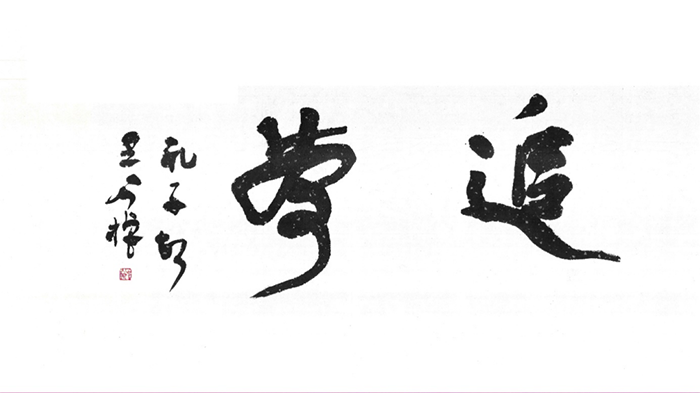 追夢
孔子故
里